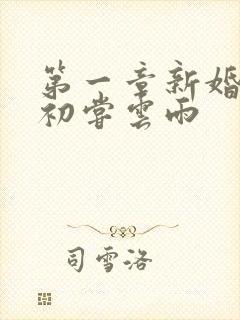 第一章新婚
初嘗雲雨
司雪洛